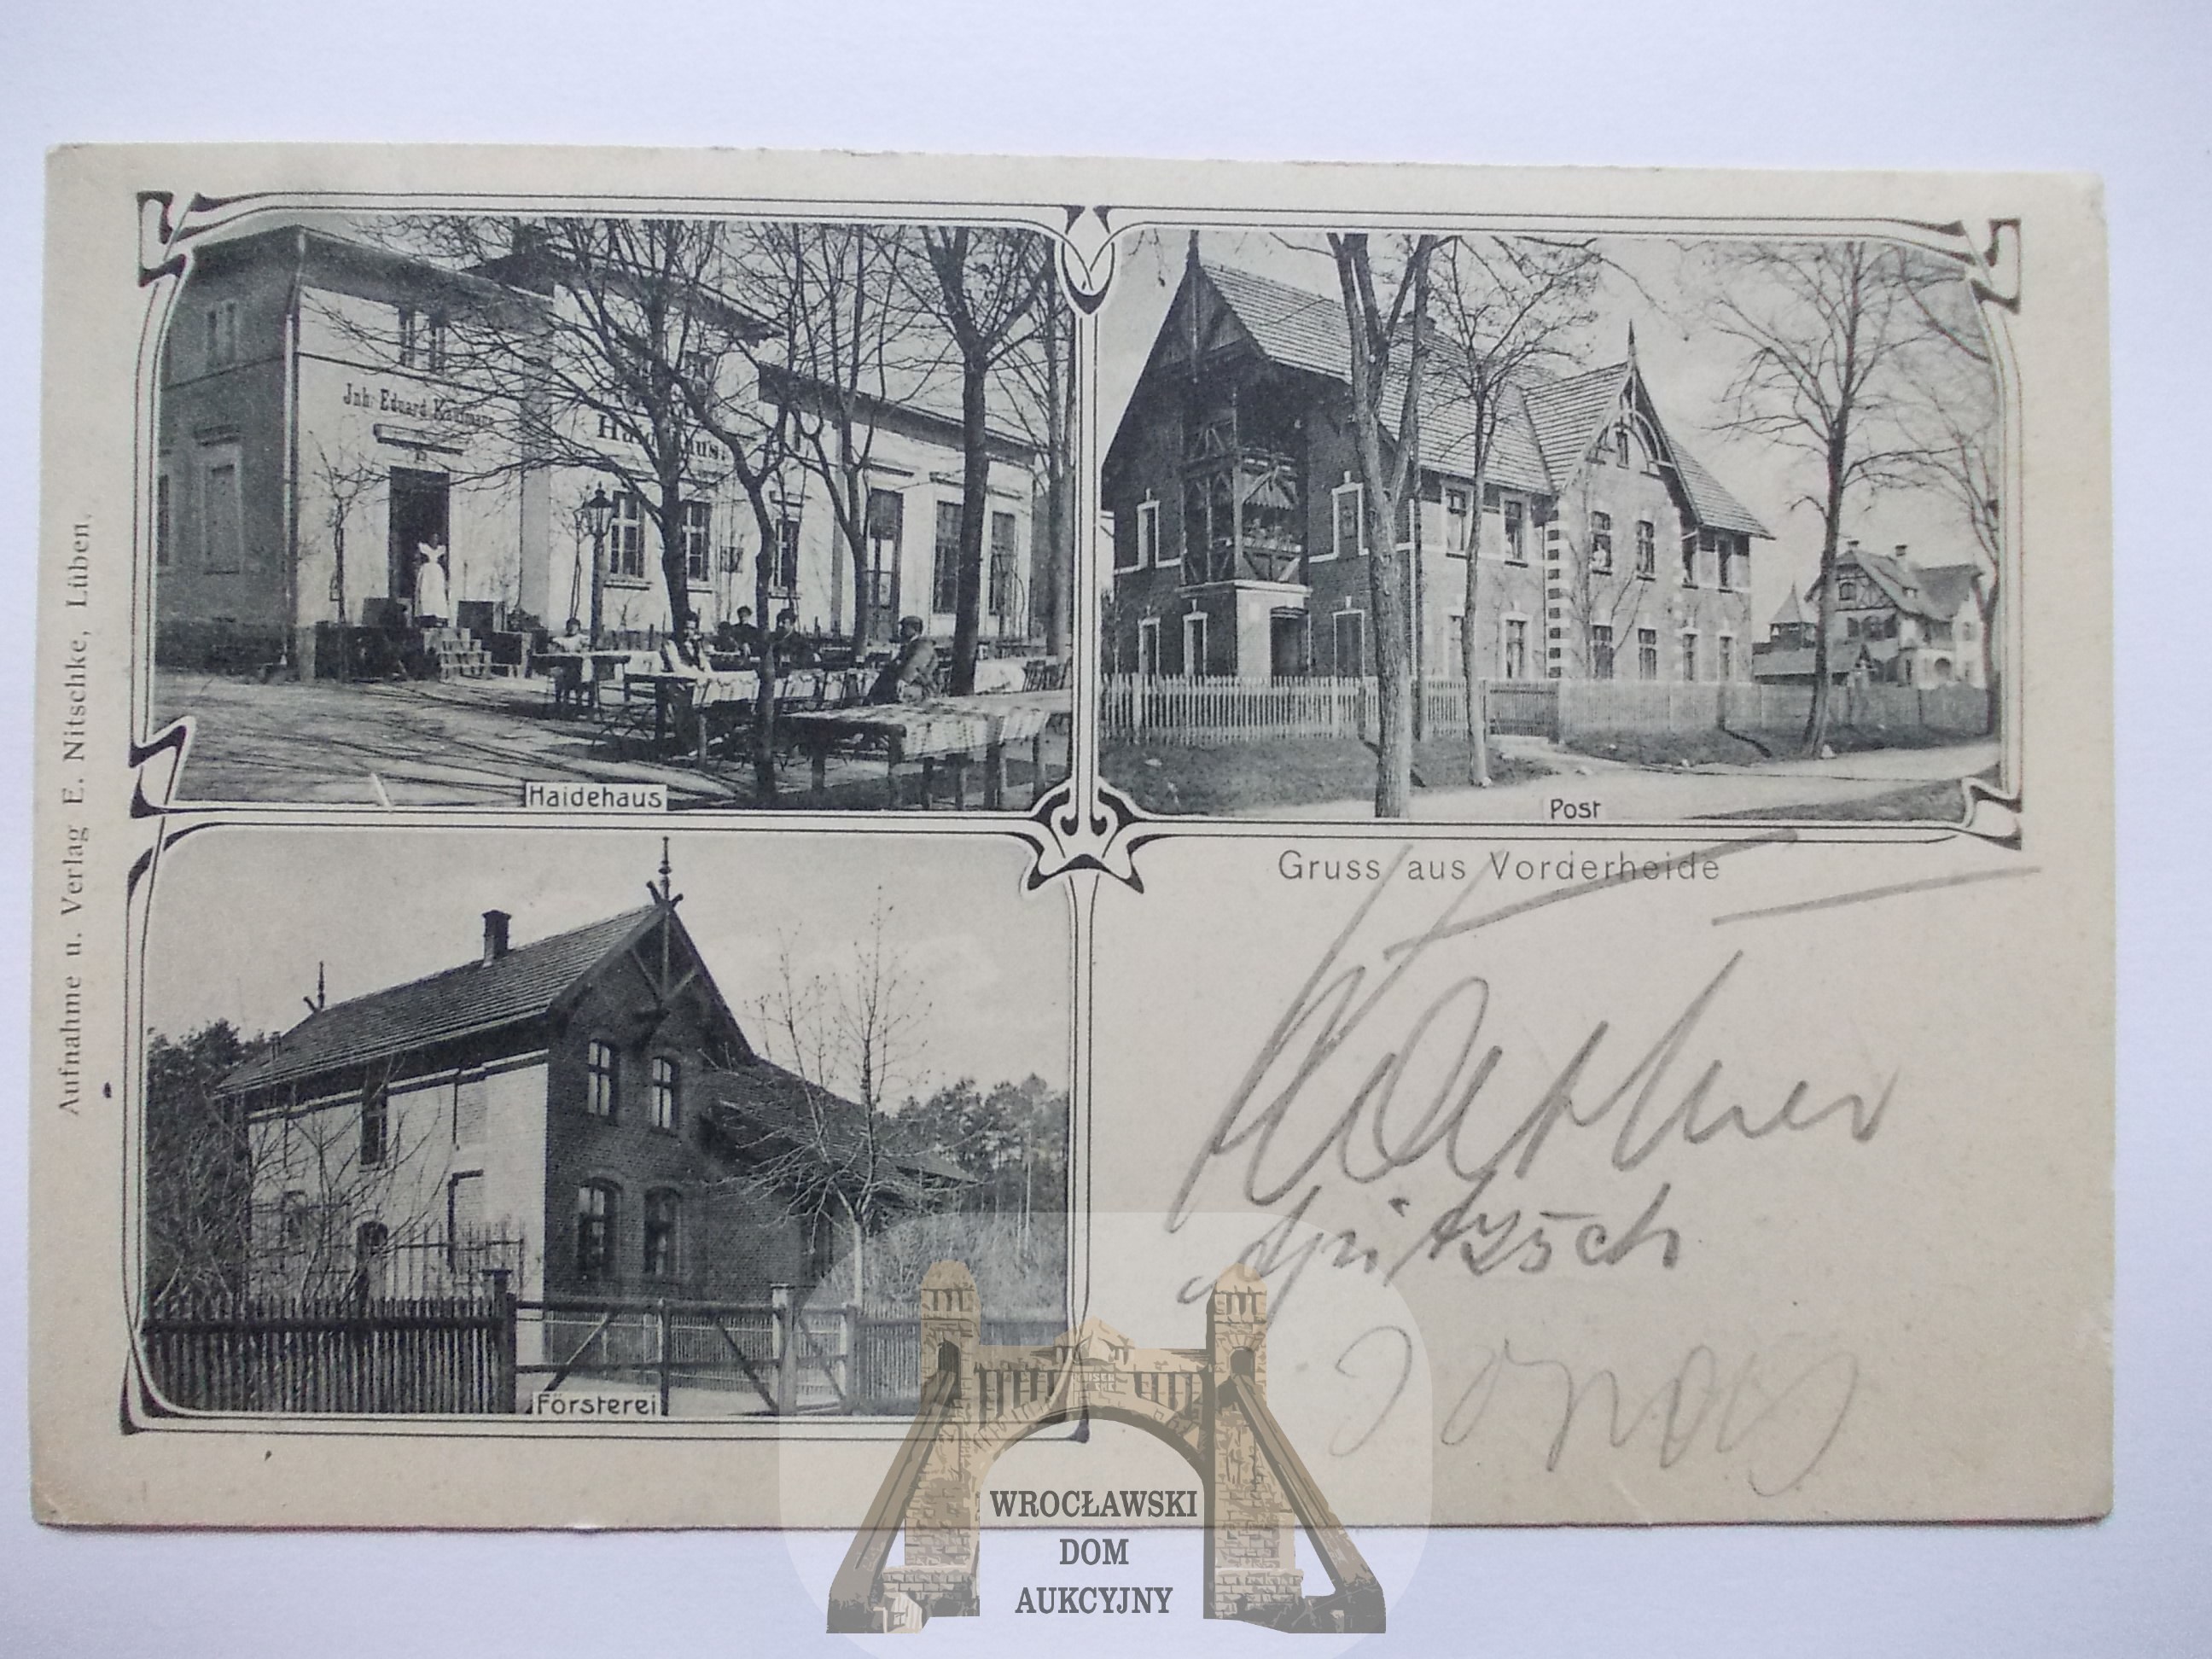 Aufnahme u. Verlag E. Nitschke, Lüben.
Jnh: Eduard Kaufmann
Haidehaus.
Haidehaus
Post
Gruss aus Vorderheide
Försterei
WROCŁAWSKI
DOM
AUKCYJNY